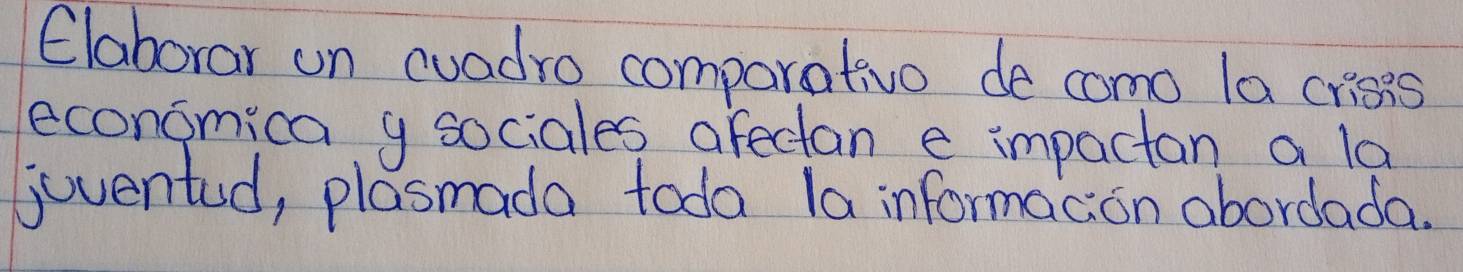 Elaborar un cuadro comparativo de como la crisis
económica y sociales afectan e impactan a la
juventud, plasmada toda la información abordada.